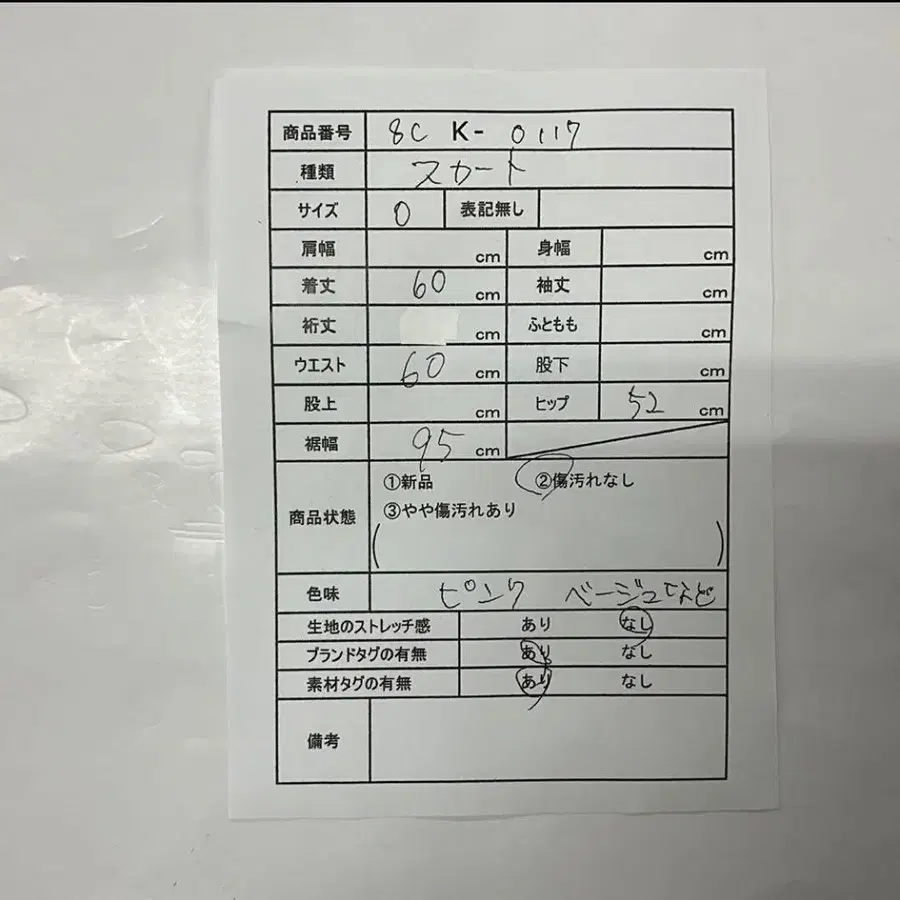 商品番号 8C K- 0117
種類 スカート
サイズ 0 表記無し
肩幅 cm 身幅 cm
着丈 60 cm 袖丈 cm
裄丈 cm ふともも cm
ウエスト 60 cm 股下 cm
股上 cm ヒップ 52 cm
裾幅 95 cm
商品状態 ①新品 ②傷汚れなし
③やや傷汚れあり
( )
色味 ピンク ベージュなど
生地のストレッチ感 あり なし
ブランドタグの有無 あり なし
素材タグの有無 あり なし
備考